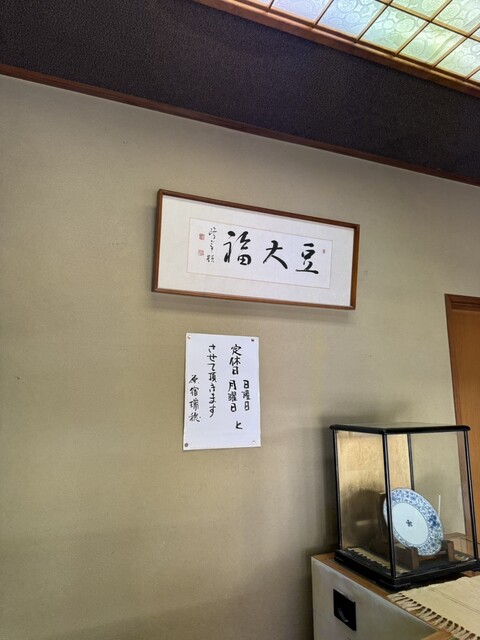 豆大福
日曜日 と
定休日 月曜日
させて頂きます
原宿 瑞穂